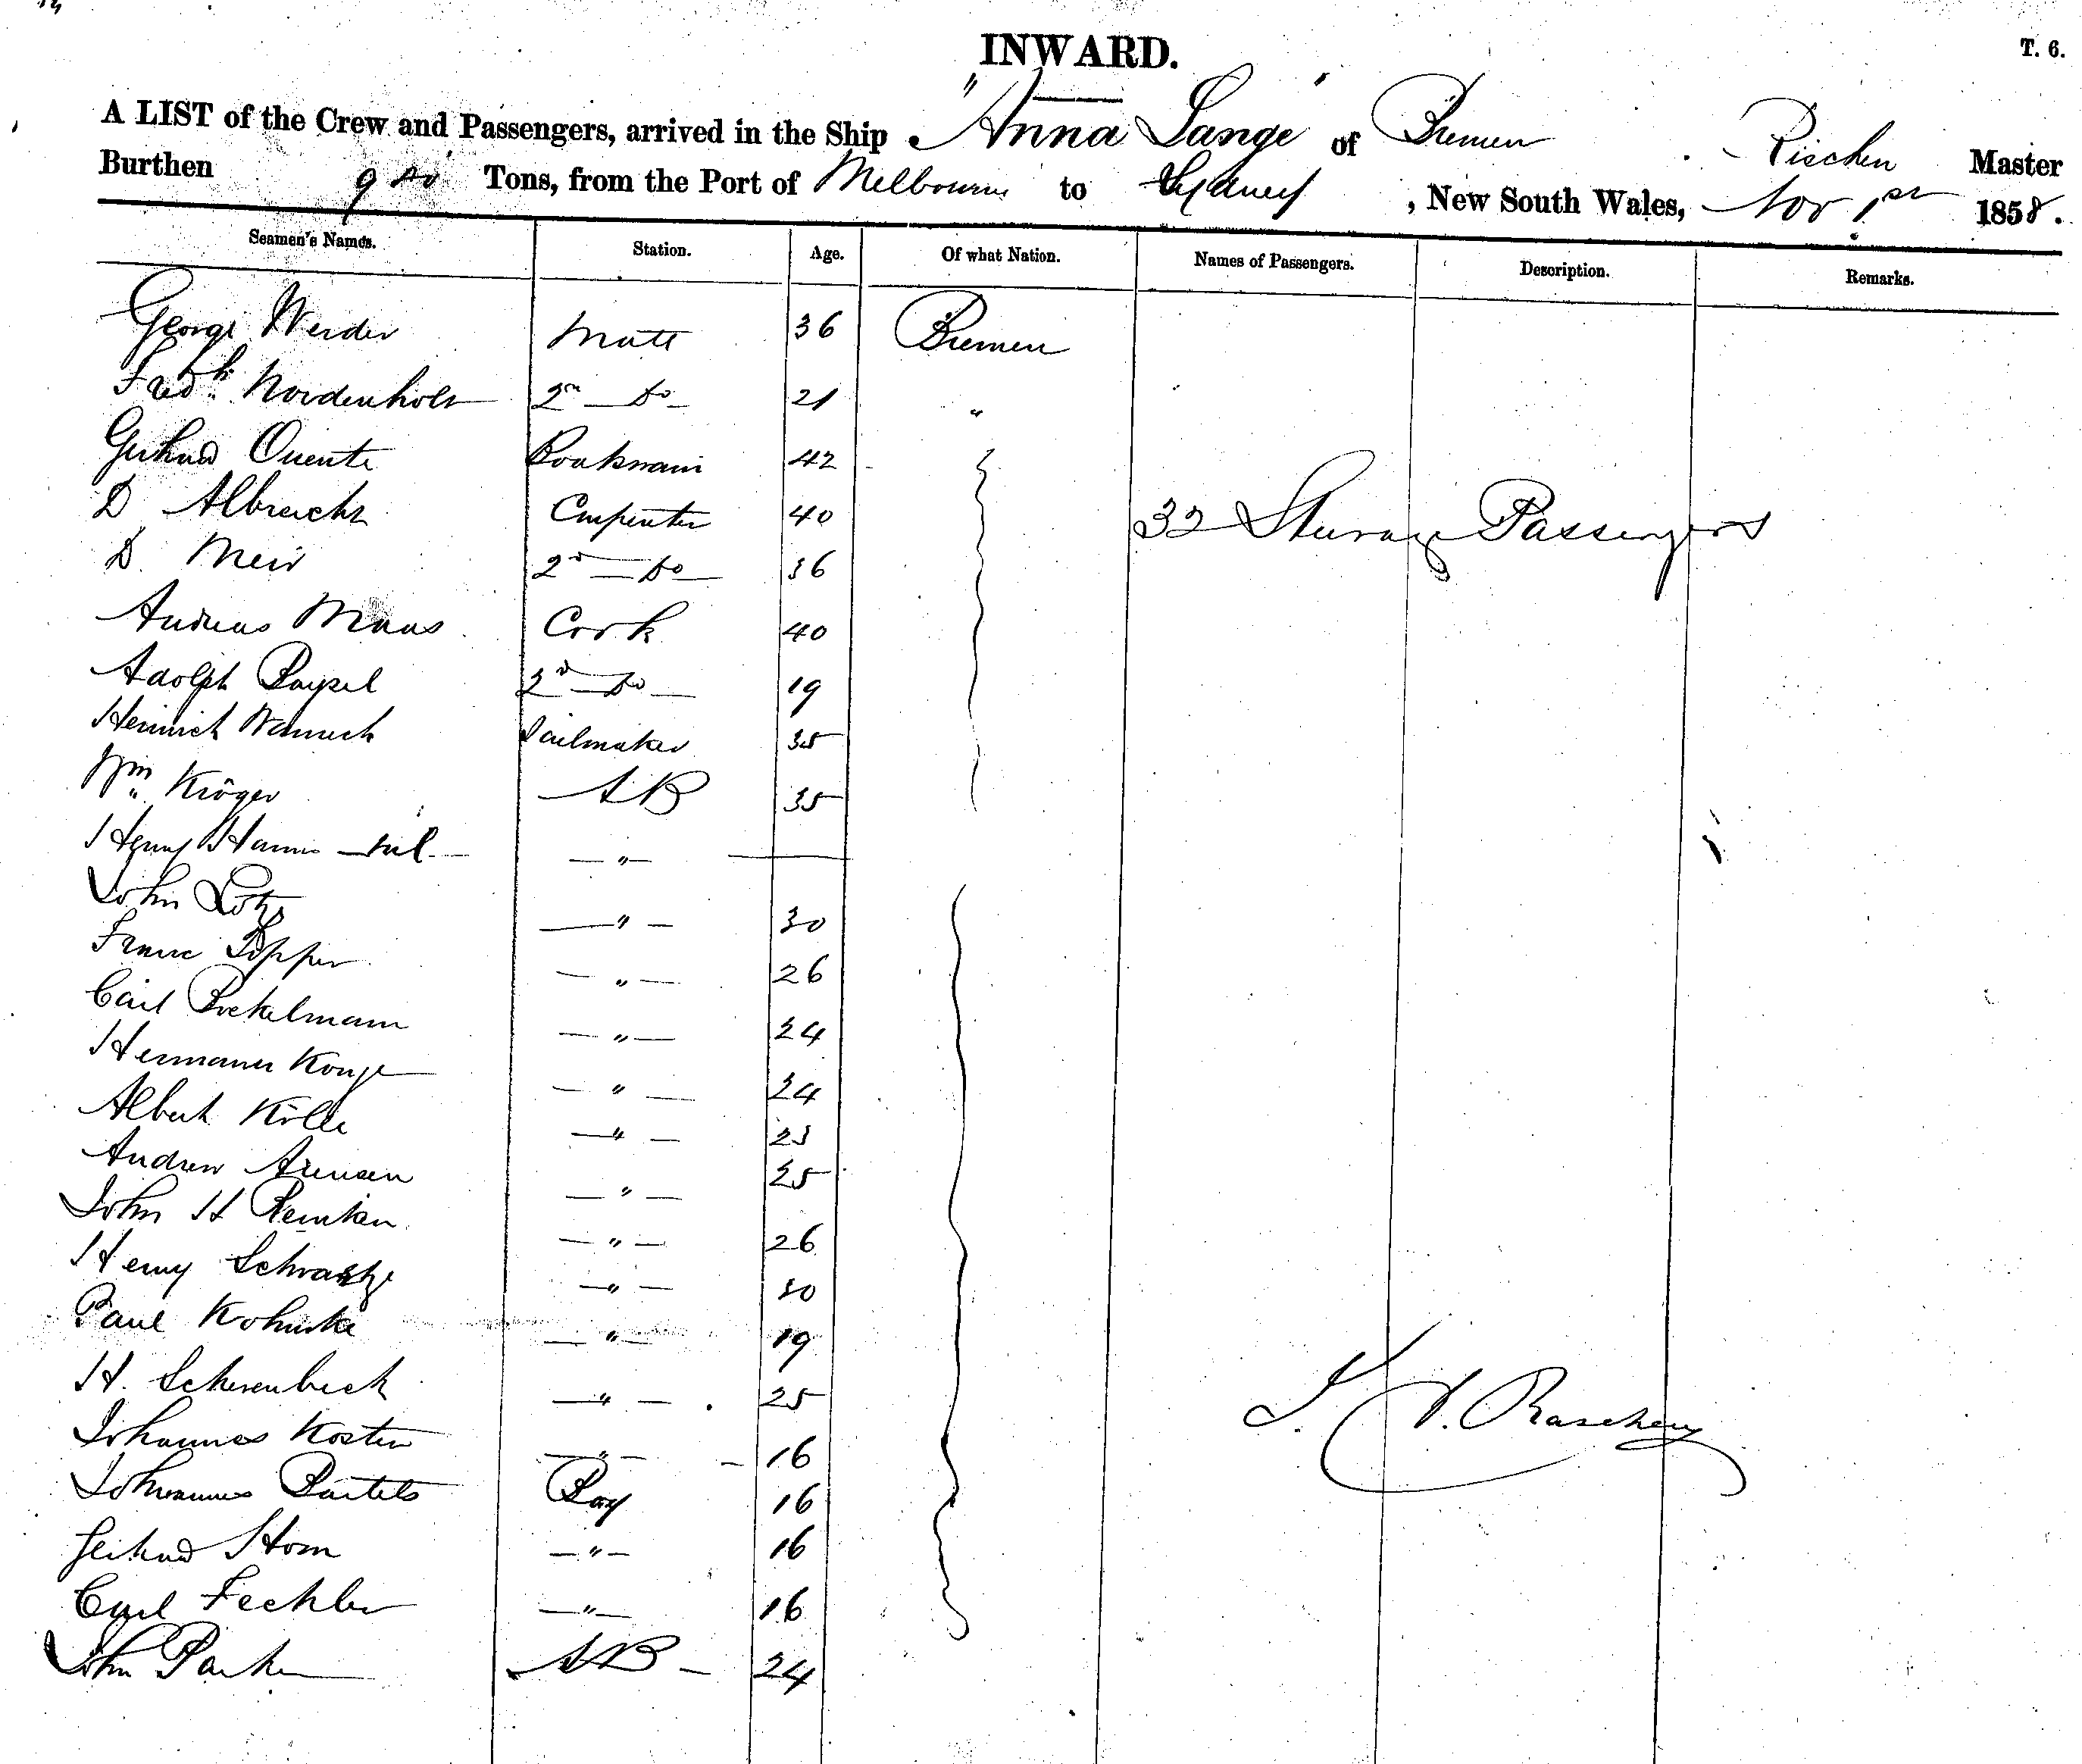 INWARD.
T. 6.
A LIST of the Crew and Passengers, arrived in the Ship "Anna Lange" of Bremen Master
Burthen Tons, from the Port of Melbourne to Sydney, New South Wales, Nov 1st 1858.
Seamen's Names. Station. Age. Of what Nation. Names of Passengers. Description. Remarks.
George Werder Mate 36 Bremen
Fredk Nordenholt 2nd Do 21 "
Gerhard Boatswain 42
D Albrecht Carpenter 40 32 Steerage Passengers
D. Meir 2nd Do 36
Andreas Maas Cook 40
Adolph 2nd Do 19
Heinrich Sailmaker 35
Wm Kröger AB 35
Henry "
John "  30
Franc "  26
Carl "  24
Hermann "  24
Albert Kölle "  23
Andrew "  25
John H "  26
Henry "  20
Paul "  19
H. "  25
Johannes Kosten " 16
Johannes Bartels Boy 16
Gerhard Horn " 16
Carl Fechler " 16
John AB 24